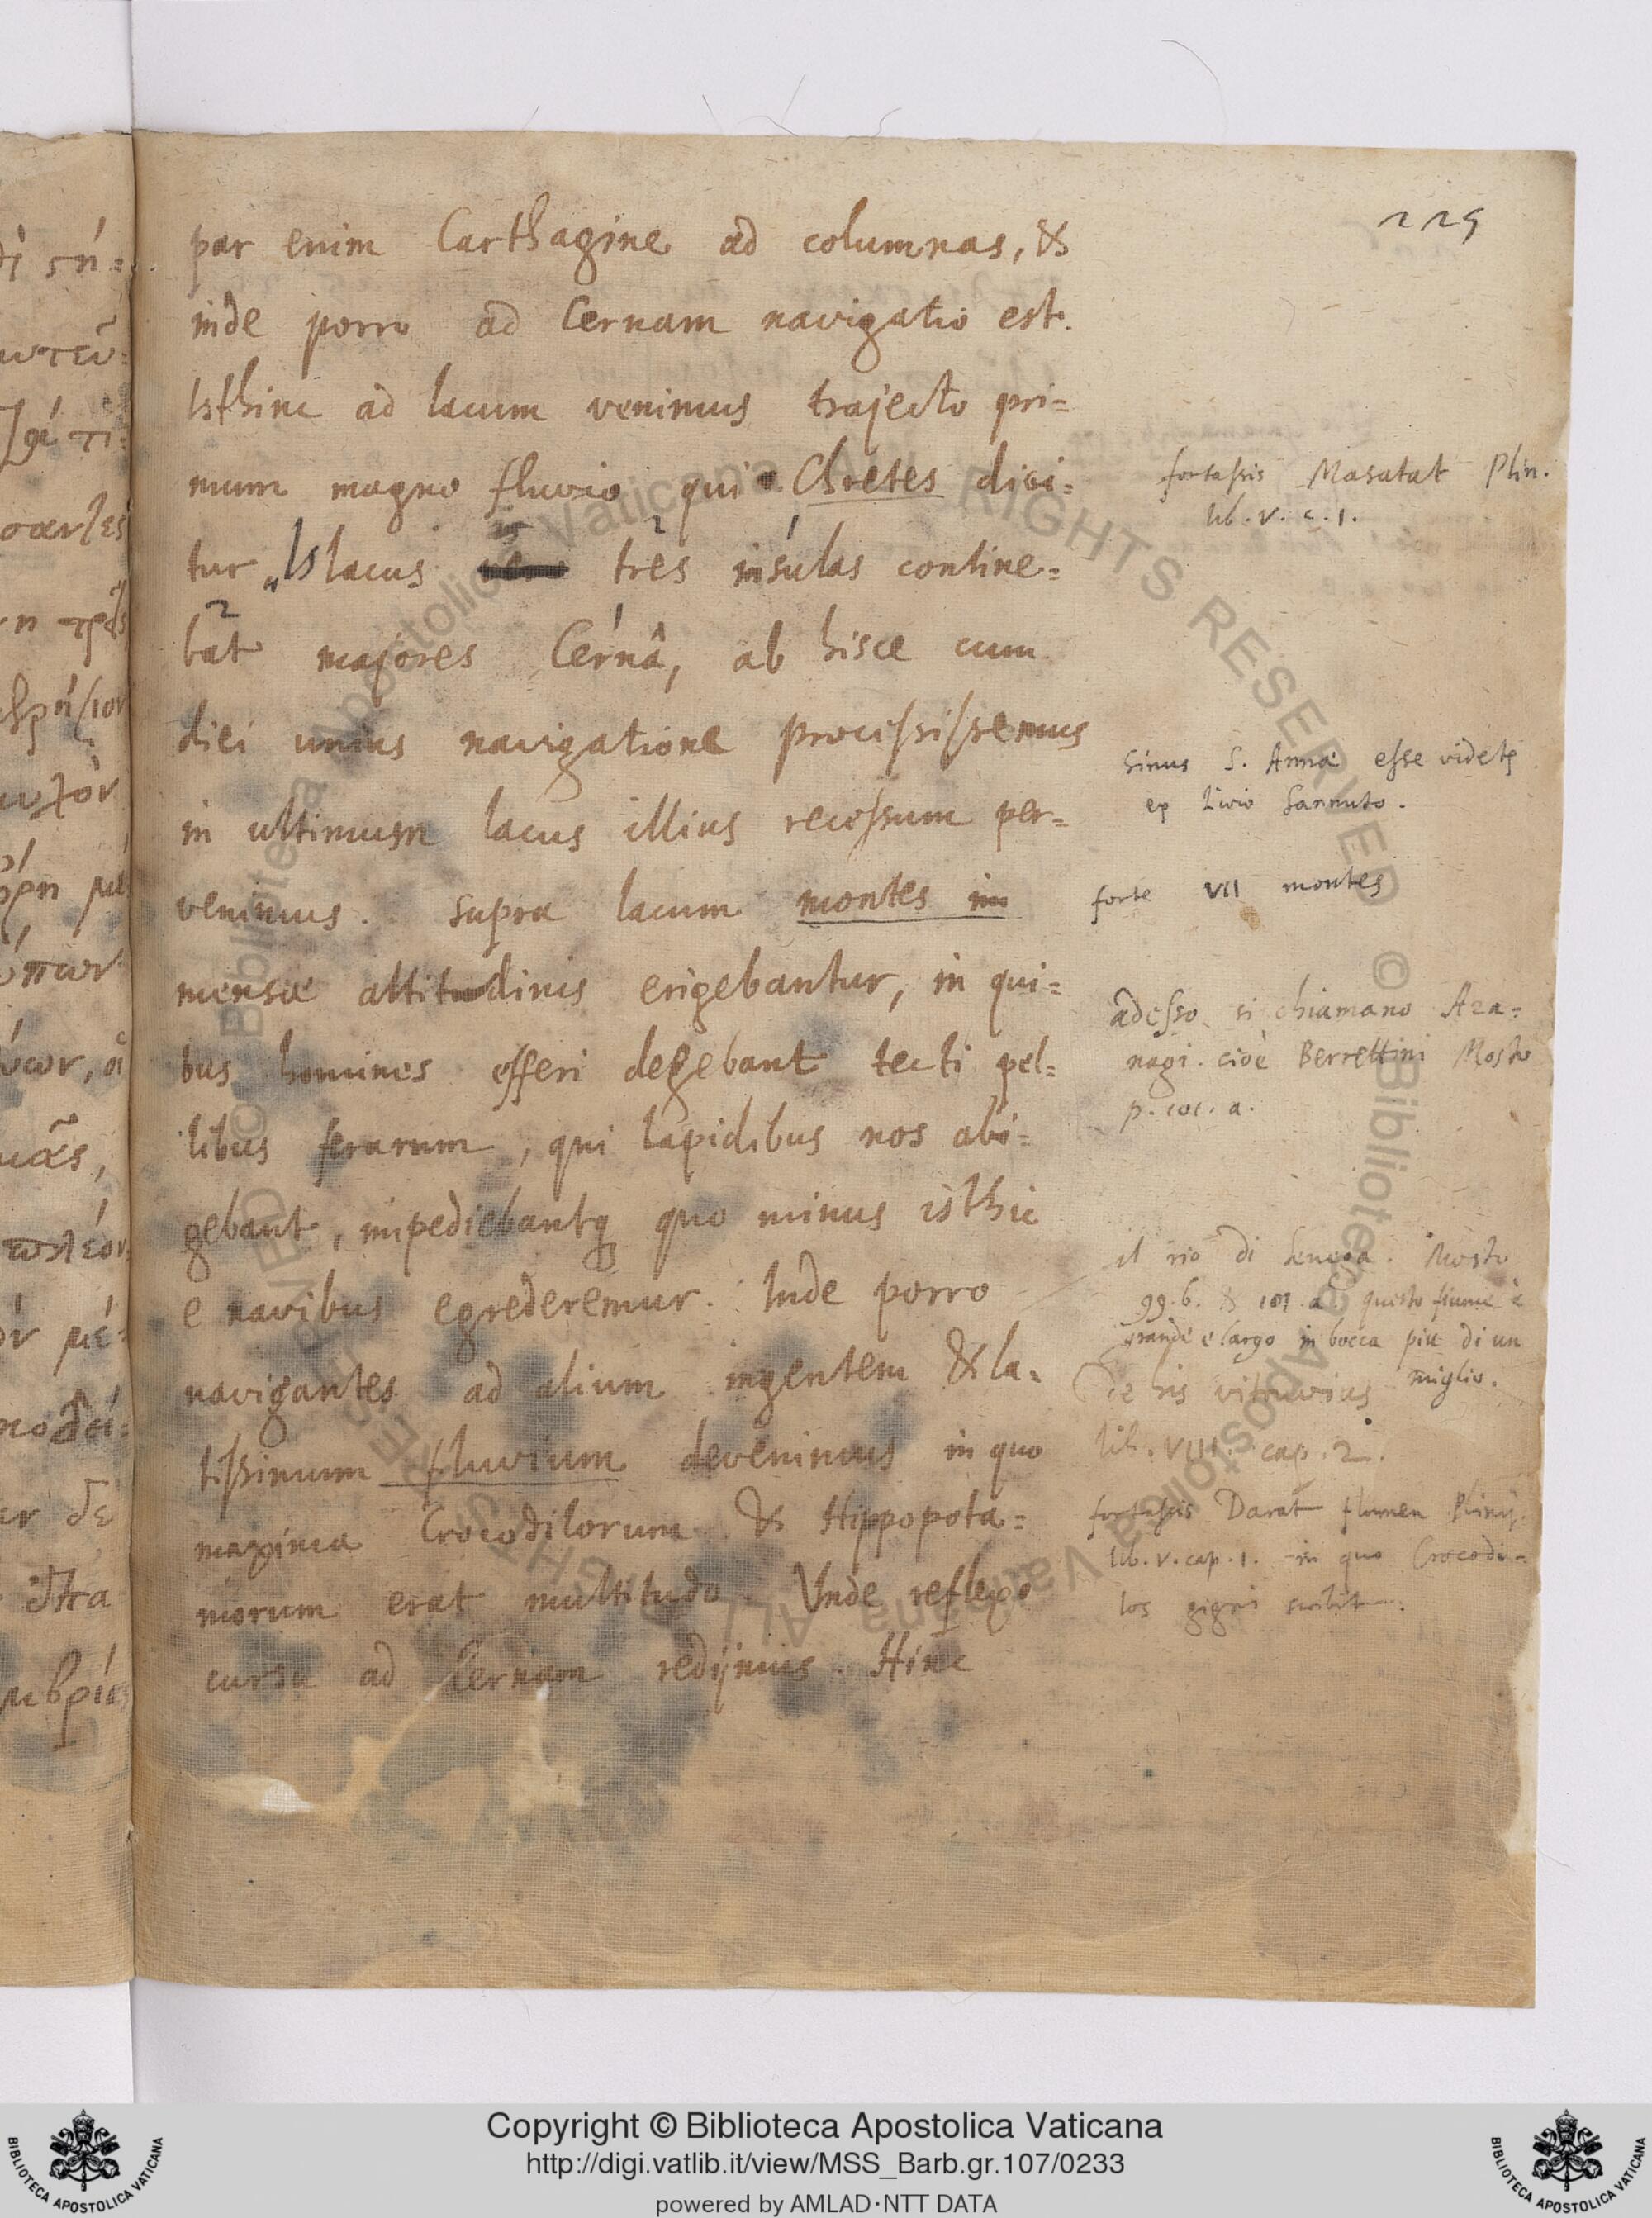 225
par enim Carthagine ad columnas, &
inde porro ad Cernam navigatio est.
Isthinc ad lacum venimus trajecto pri=
mum magno fluvio qui Chretes dici=
tur „Is lacus is tres insulas contine=
bat majores Cernâ, ab hisce cum
diei unius navigatione processissemus
in ultimum lacus illius recessum per=
venimus. supra lacum montes im
mensæ altitudinis erigebantur, in qui=
bus homines efferi degebant tecti pel=
libus ferarum, qui lapidibus nos abi=
gebant, impediebantq quo minus isthic
e navibus egrederemur. Inde porro
navigantes ad alium ingentem & la=
tissimum fluvium devenimus in quo
maxima Crocodilorum & Hippopota=
morum erat multitudo. Unde reflexo
cursu ad Cernam redijmus. Hinc
fortassis Masatat Plin.
lib. v. c. 1.
Sinus S. Annæ esse videtr
ex Livio Sannuto.
forte VII montes
adesso si chiamano Aza=
nagi. cioè Berrettini Mosto
p. 101. a.
il rio di Senega. Mosto
99. b. & 101. a questo fiume è
grande e largo in bocca piu di un
miglio.
de his vitruvius
lib. VIII. cap. 2.
fortassis Darat flumen Plinij.
lib. v. cap. 1. in quo Crocodi=
los gigni
Copyright © Biblioteca Apostolica Vaticana
http://digi.vatlib.it/view/MSS_Barb.gr.107/0233
powered by AMLAD·NTT DATA
BIBLIOTECA APOSTOLICA VATICANA
BIBLIOTECA APOSTOLICA VATICANA
© Biblioteca Apostolica Vaticana ALL RIGHTS RESERVED
© Biblioteca Apostolica Vaticana ALL RIGHTS RESERVED